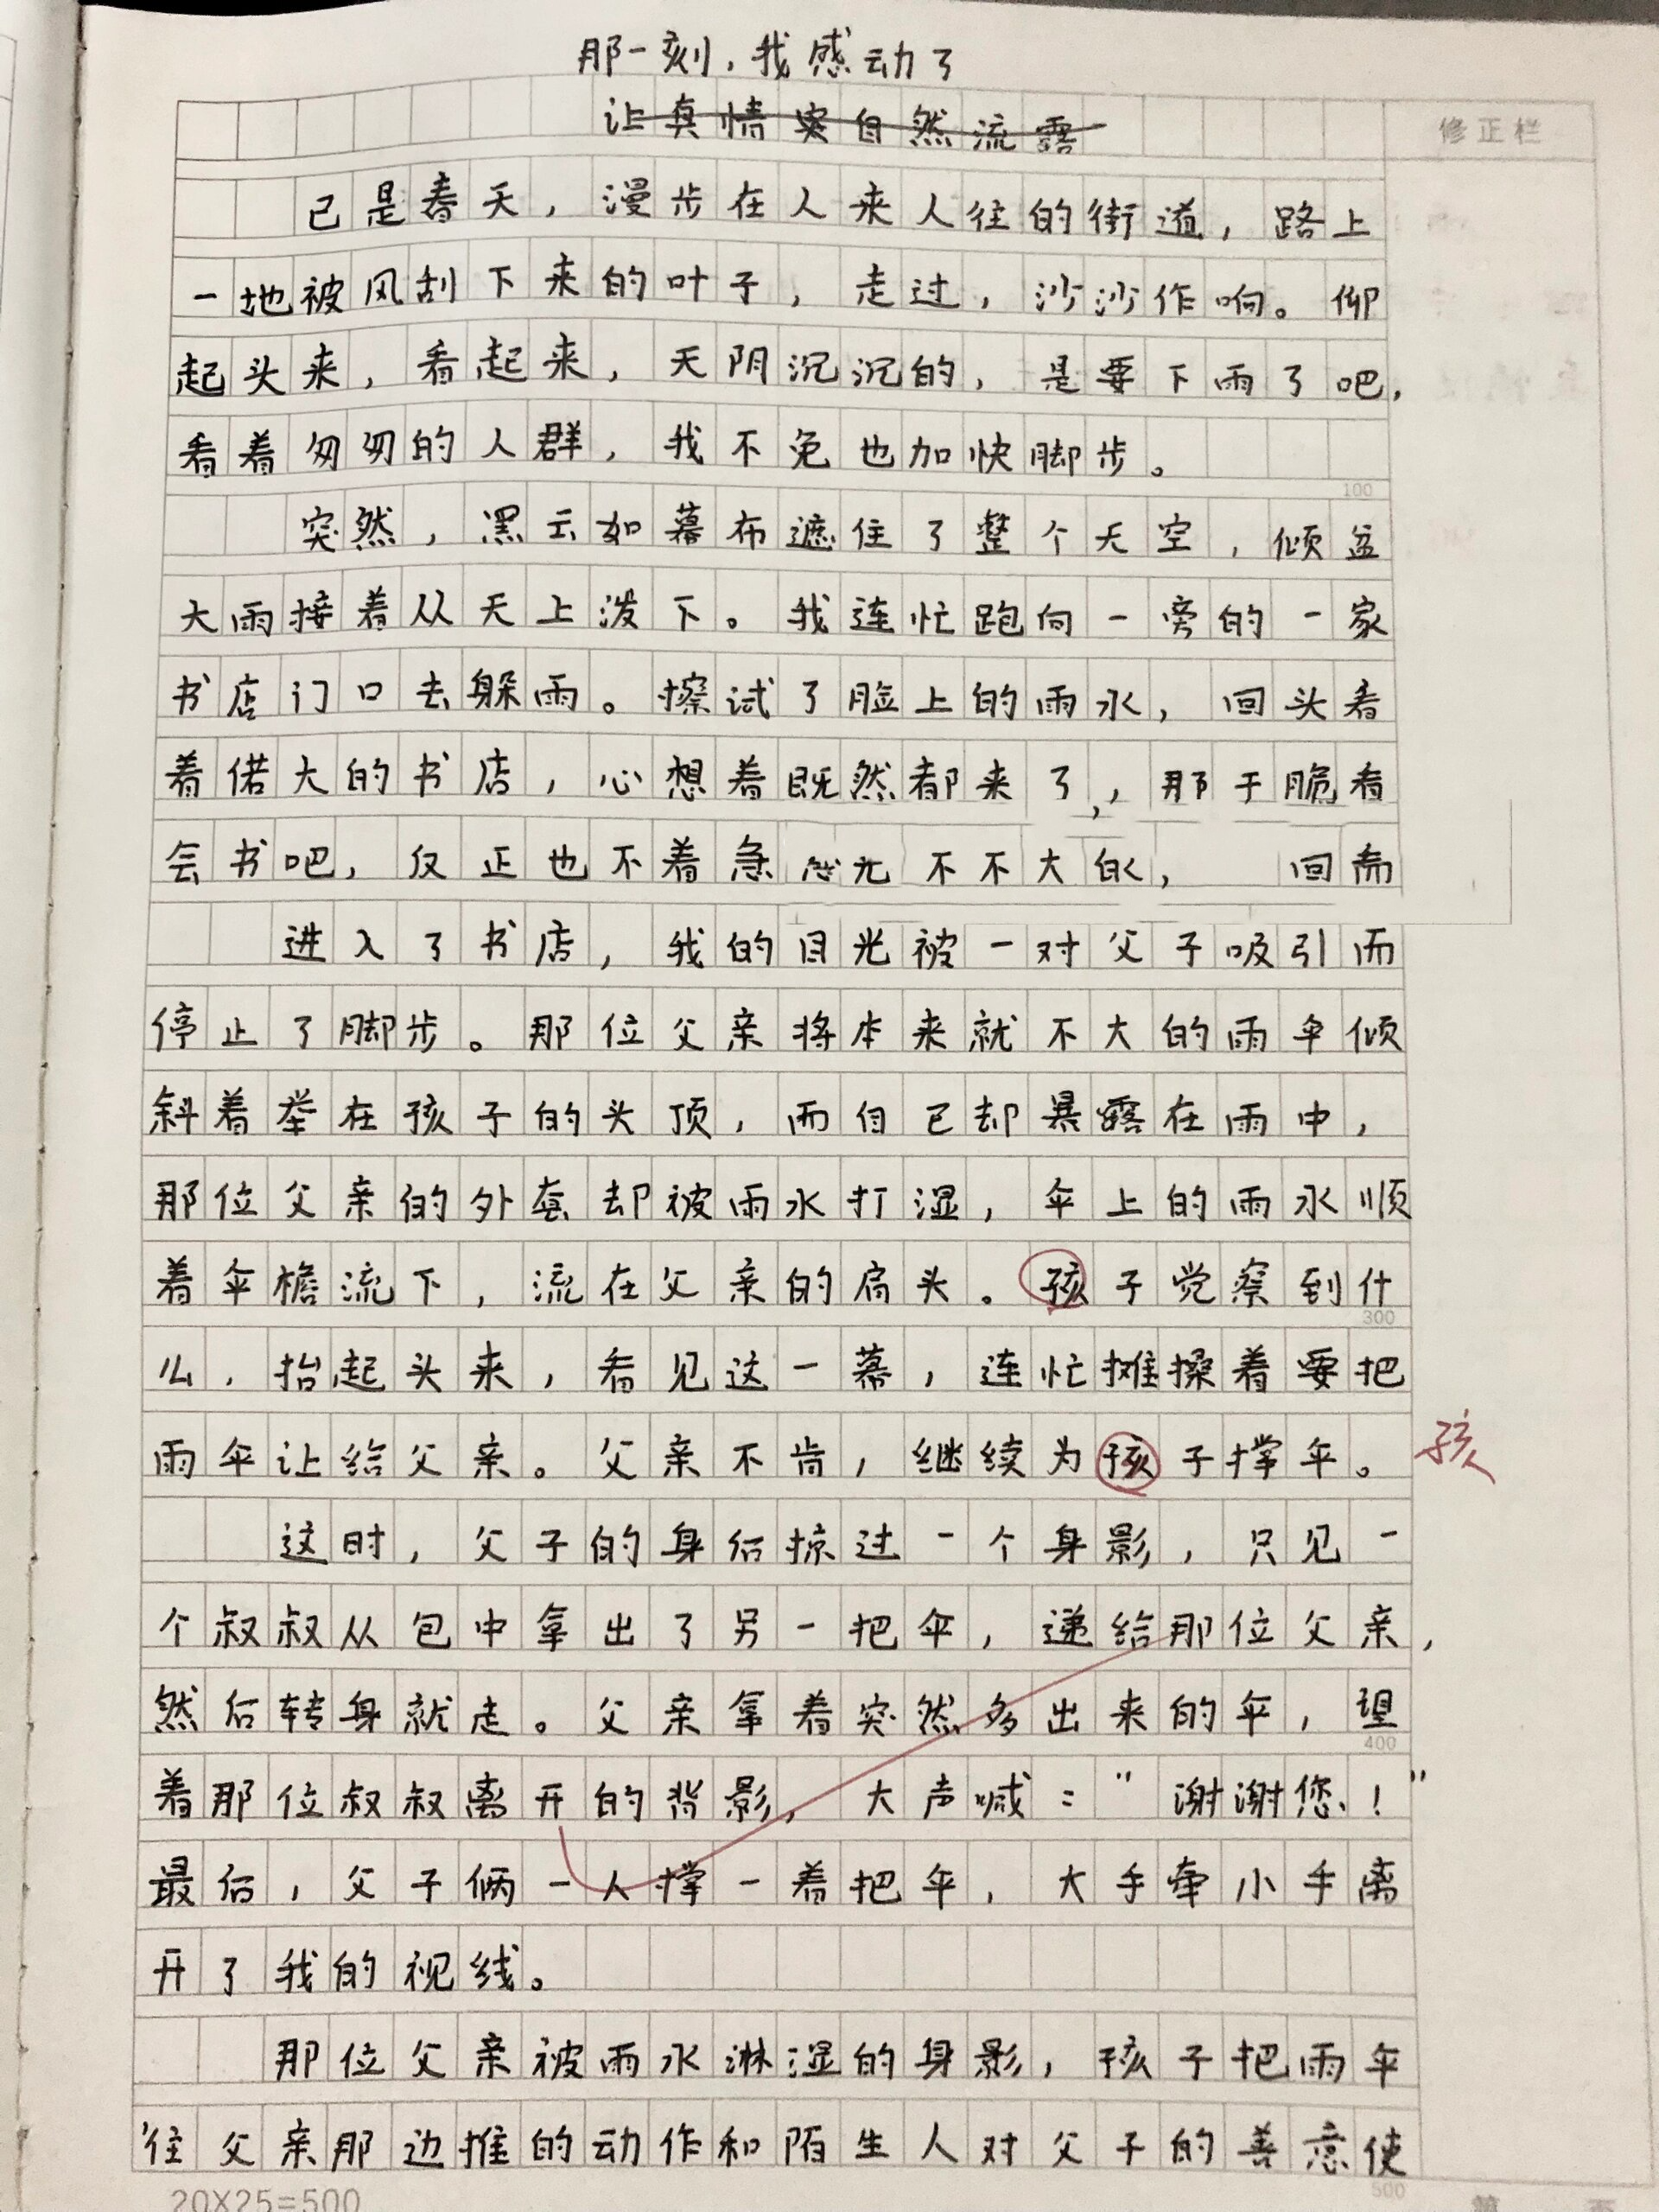 那一刻，我感动了
让真情实自然流露
修正栏
已是春天，漫步在人来人往的街道，路上
一地被风刮下来的叶子，走过，沙沙作响。仰
起头来，看起来，天阴沉沉的，是要下雨了吧，
看着匆匆的人群，我不免也加快脚步。
100
突然，黑云如幕布遮住了整个天空，倾盆
大雨接着从天上泼下。我连忙跑向一旁的一家
书店门口去躲雨。擦试了脸上的雨水，回头看
着偌大的书店，心想着既然都来了，那干脆看
会书吧，反正也不着急 不不大的， 回
进入了书店，我的目光被一对父子吸引而
停止了脚步。那位父亲将本来就不大的雨伞倾
斜着举在孩子的头顶，而自己却暴露在雨中，
那位父亲的外套却被雨水打湿，伞上的雨水顺
着伞檐流下，流在父亲的肩头。孩子觉察到什
300
么，抬起头来，看见这一幕，连忙摊搡着要把
雨伞让给父亲。父亲不肯，继续为孩子撑伞。
孩
这时，父子的身后掠过一个身影，只见一
个叔叔从包中拿出了另一把伞，递给那位父亲，
然后转身就走。父亲拿着突然多出来的伞，望
400
着那位叔叔离开的背影，大声喊："谢谢您！"
最后，父子俩一人撑一着把伞，大手牵小手离
开了我的视线。
那位父亲被雨水淋湿的身影，孩子把雨伞
往父亲那边推的动作和陌生人对父子的善意使
500
20X25=500
第